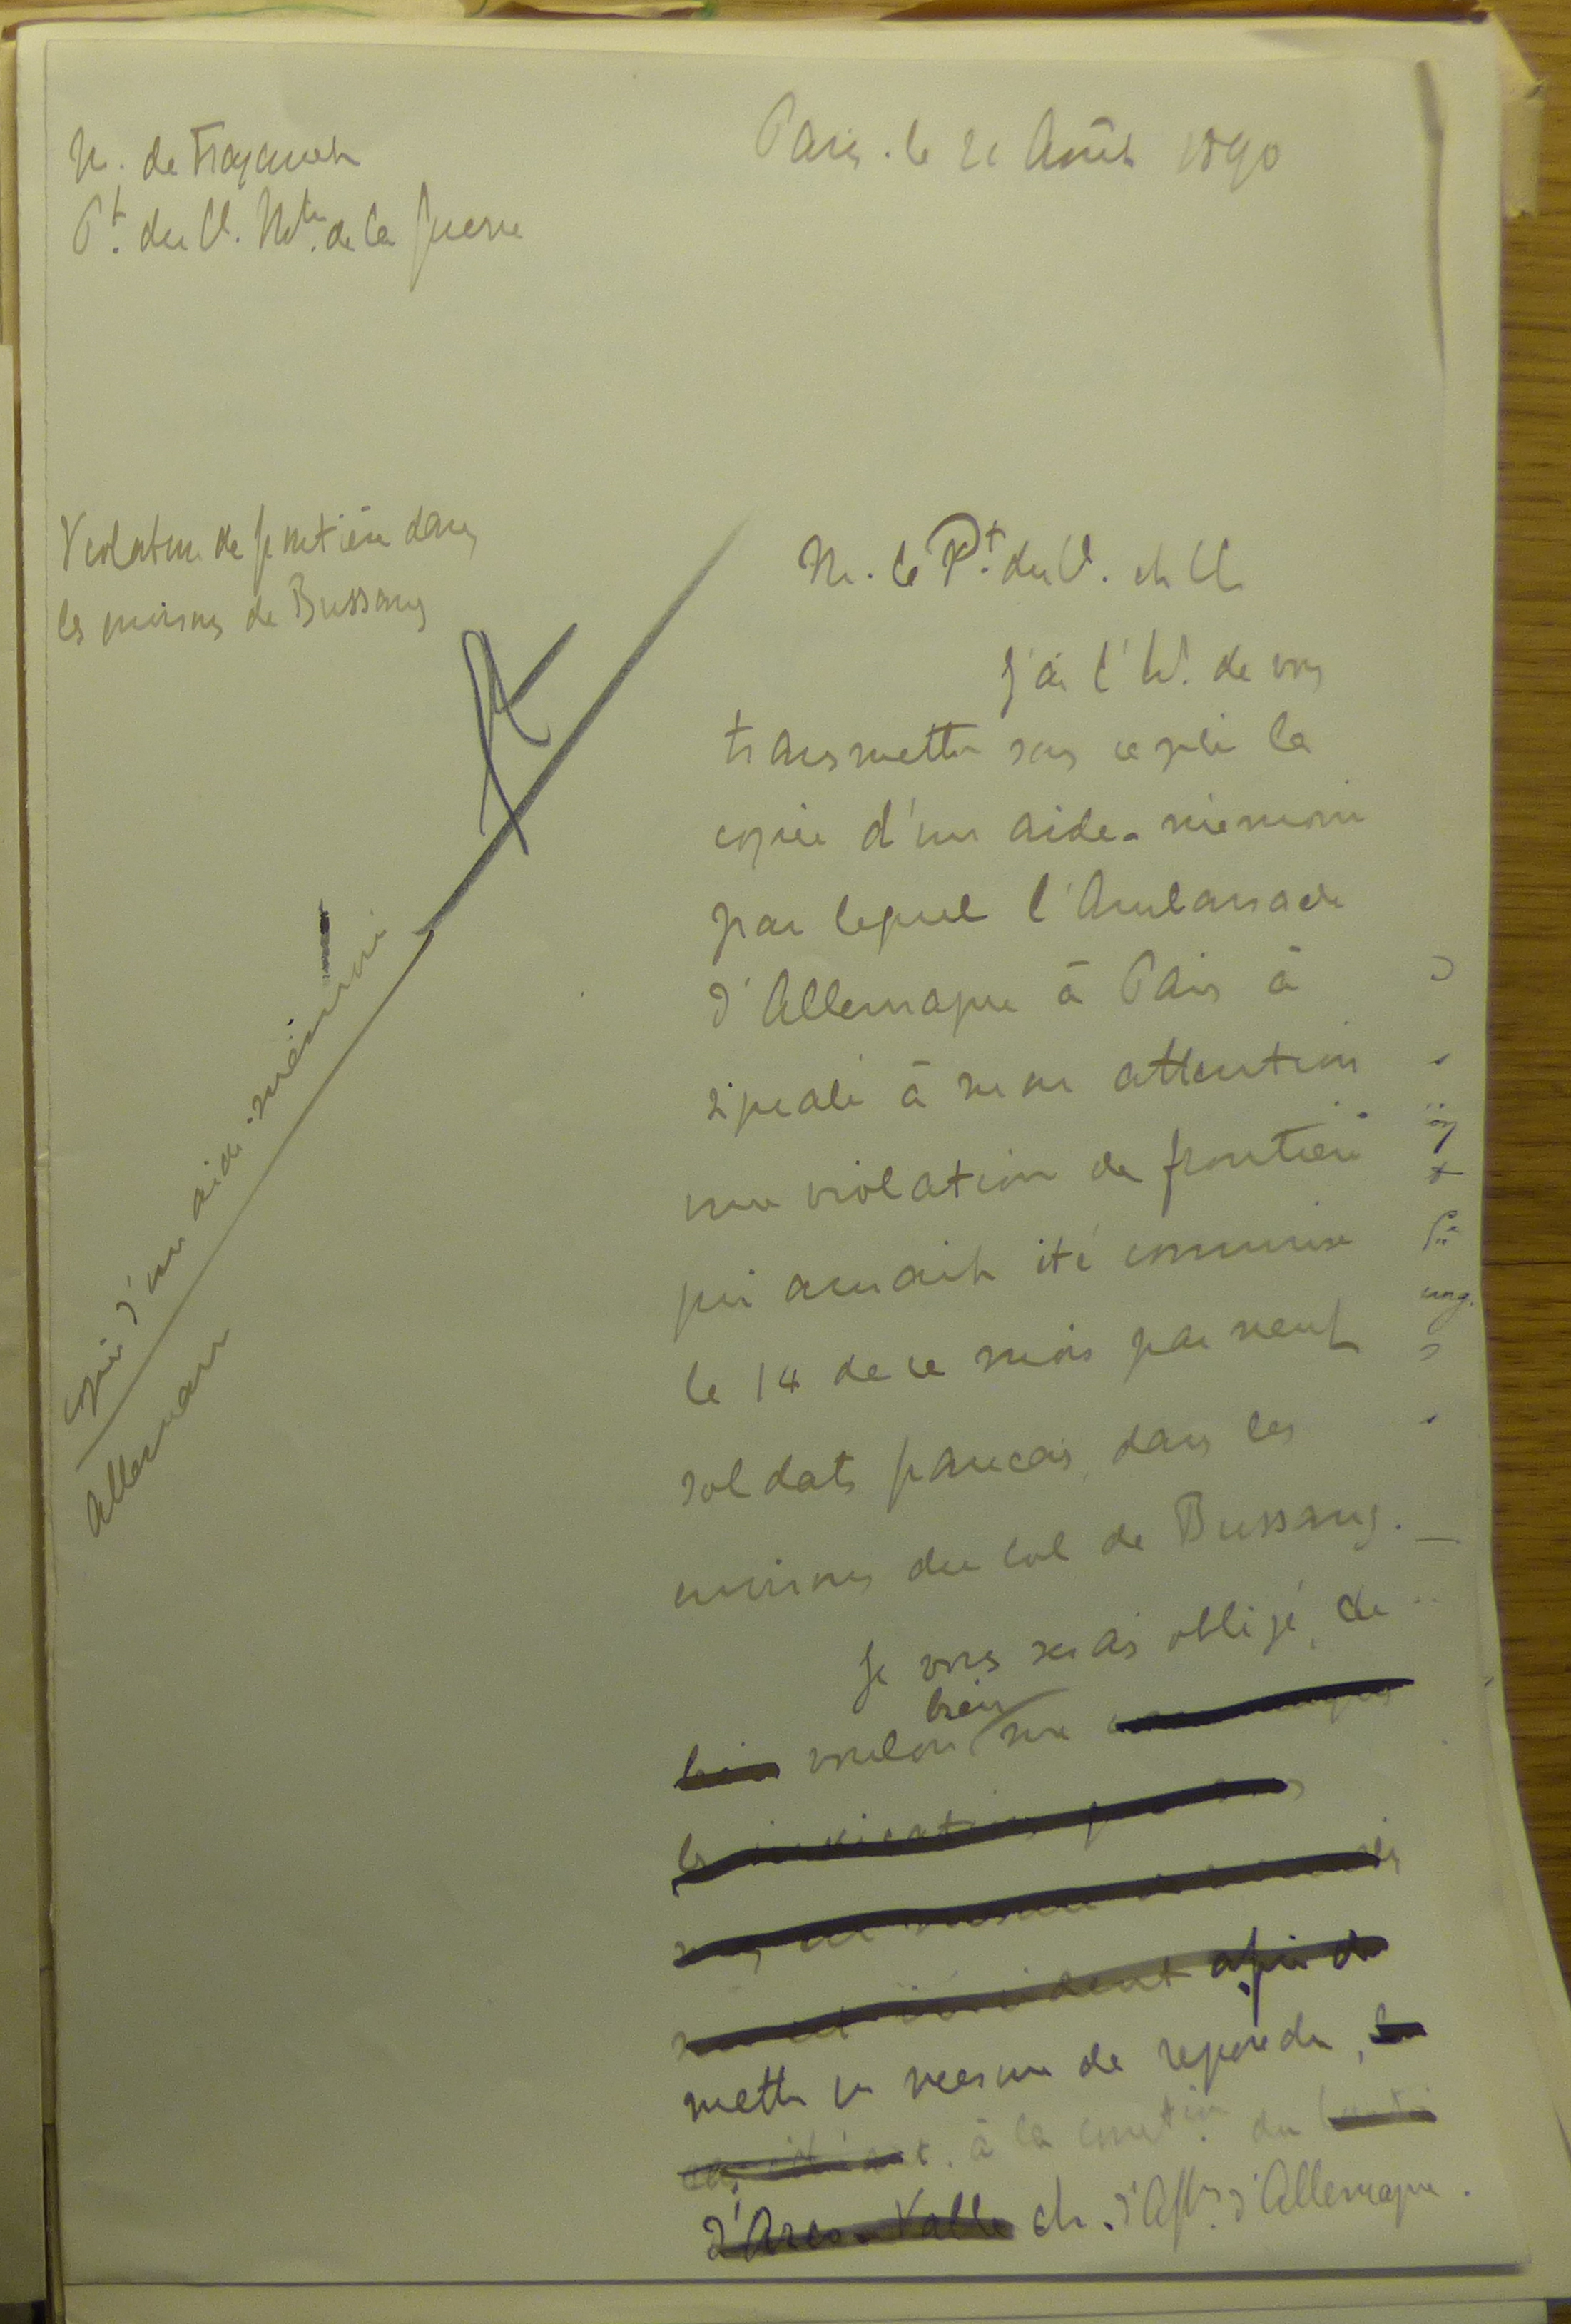 M. de Freycinet
Pt. du Cl. Mtre. de la guerre
Paris. le 21 Août 1890
Violation de frontière dans
les environs de Bussang
copie d'un aide-mémoire
allemand
M. le Pt. du C. ch Cl
J'ai l'h. de vous
transmettre sous ce pli la
copie d'un aide-mémoire
par lequel l'Ambassade
d'Allemagne à Paris à
signalé à mon attention
une violation de frontière
qui aurait été commise
le 14 de ce mois par neuf
soldats français, dans les
environs du Col de Bussang.
Je vous serais obligé, de
bien
bien vouloir me
les indications
incident afin de
mettre en mesure de répondre,
à la contion. du Comte
d'Arco-Valle ch. d'Affres d'Allemagne.